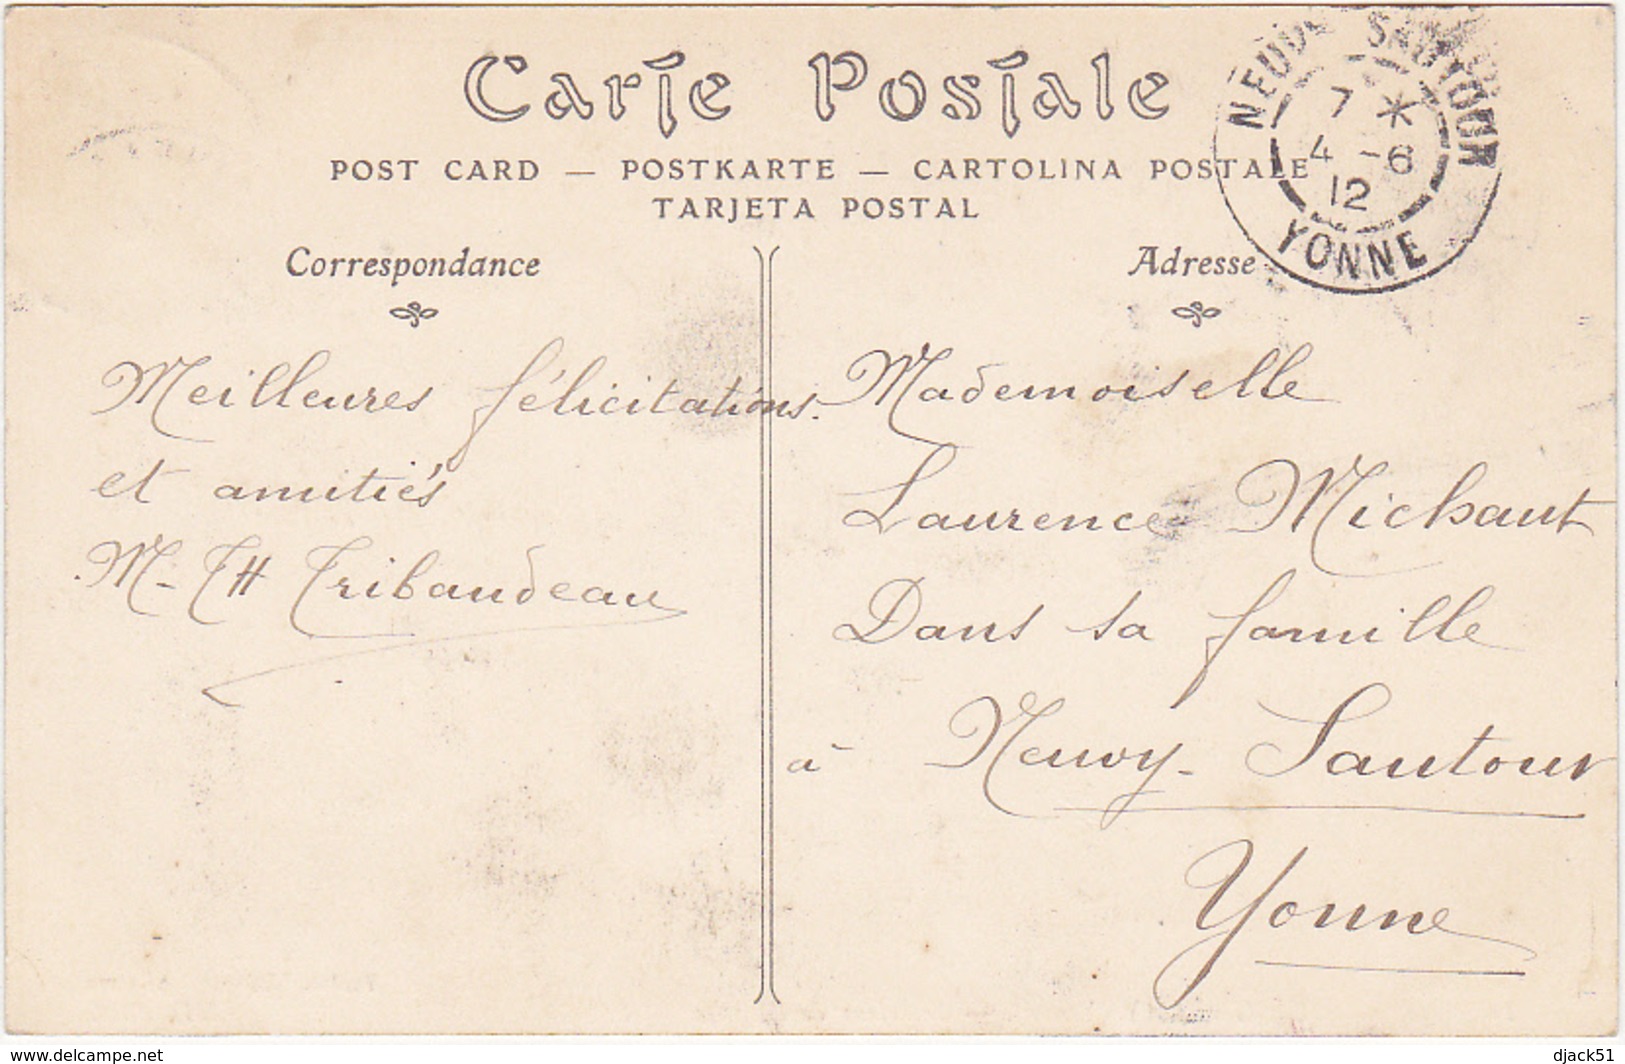 Carte Postale
POST CARD — POSTKARTE — CARTOLINA POSTALE
TARJETA POSTAL
Correspondance
Adresse
SAUTOUR
7 *
4 -6
12
YONNE
Meilleures félicitations.
et amitiés
M- TH Tribaudeau
Mademoiselle
Laurence Michaut
Dans sa famille
à Neuvy- Sautour
Yonne
www.delcampe.net
djack51